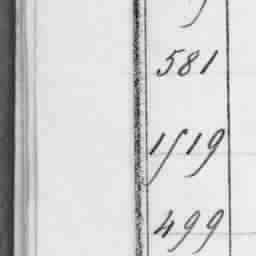 581
1519
499